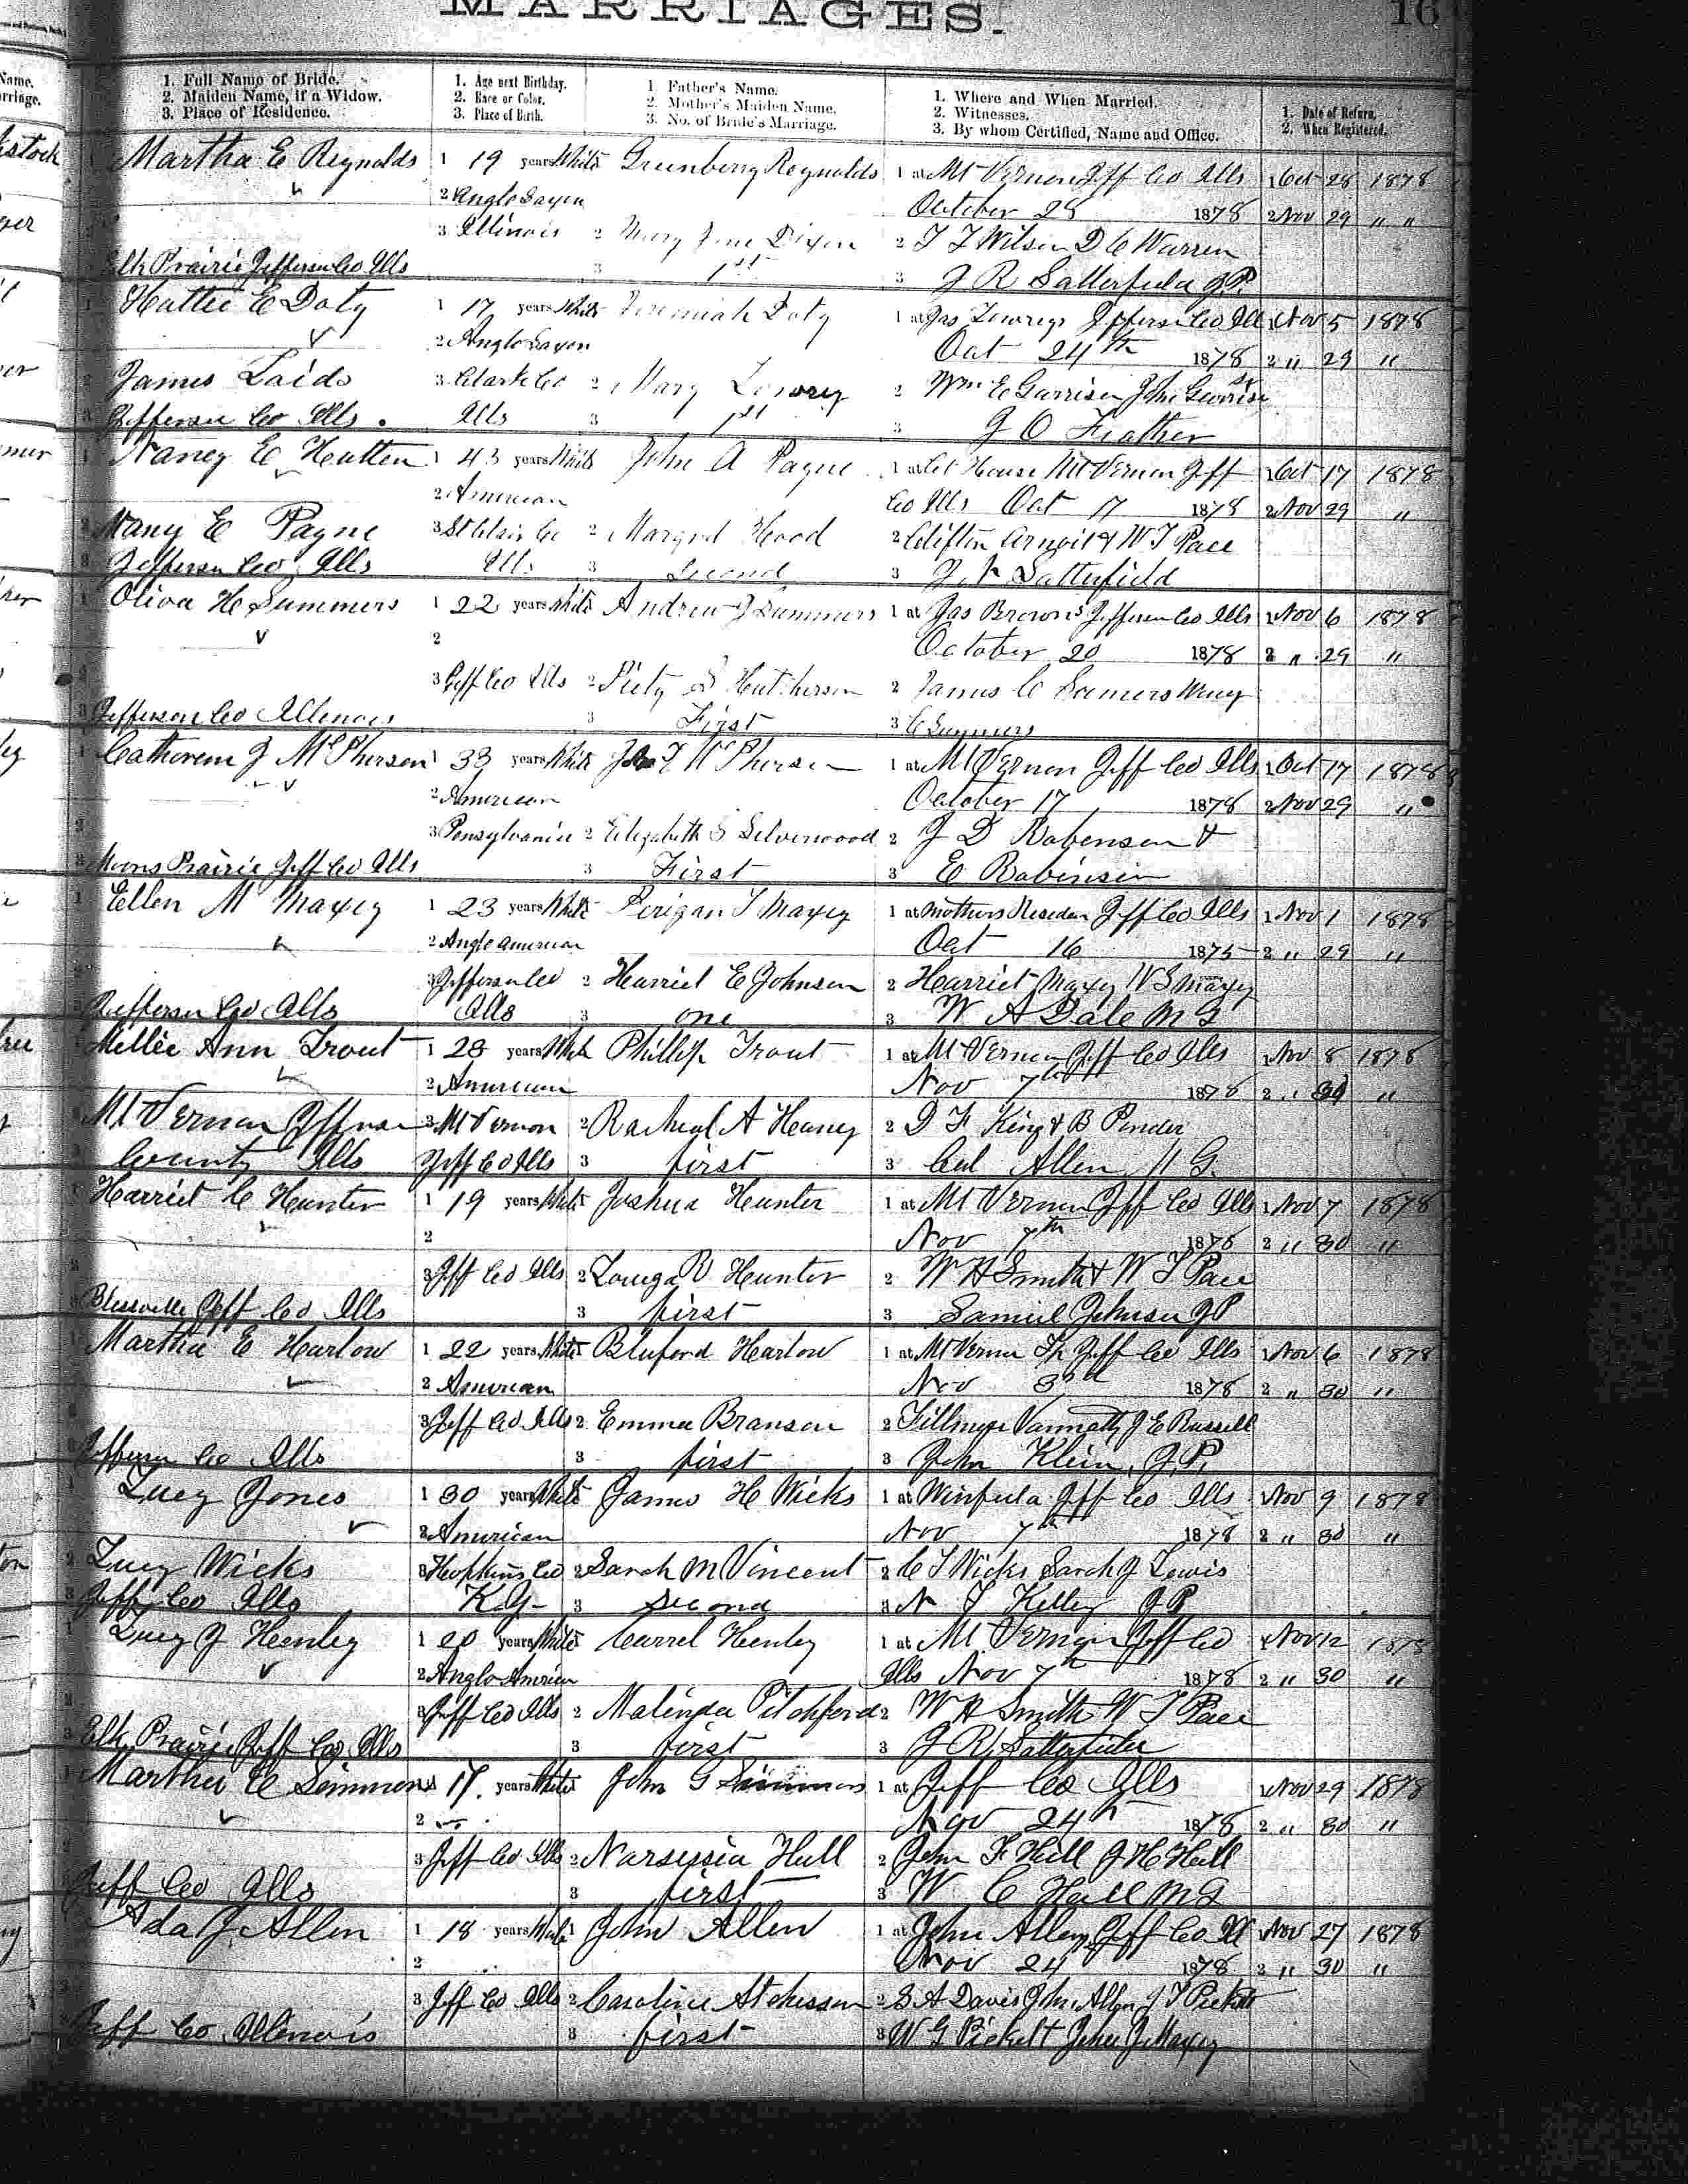 MARRIAGES.
16
Name.
1. Full Name of Bride.
2. Maiden Name, if a Widow.
3. Place of Residence.
1. Age next Birthday.
2. Race or Color.
3. Place of Birth.
1 Father's Name.
2. Mother's Maiden Name.
3. No. of Bride's Marriage.
1. Where and When Married.
2. Witnesses.
3. By whom Certified, Name and Office.
1. Date of Return.
2. When Registered.
Martha E Reynolds 1 19 years White Greenberry Reynolds 1 at Mt Vernon Jeff Co Ills 1 Oct 28 1878
2 Anglo Saxon October 28 1878 2 Nov 29 " "
3 Illinois 2 Mary Jane Dixon 2 T T Wilson D C Warren
Elk Prairie Jefferson Co Ills 3 1st 3 J R Satterfield J.P.
1 Hattie E Doty 1 17 years White Jeremiah Doty 1 at Jas Lowreys Jefferson Co Ill 1 Nov 5 1878
2 Anglo Saxon Oct 24th 1878 2 " 29 "
2 James 3 Clark Co 2 Mary Lowrey 2 Wm E Garrison John Garrison
3 Jefferson Co Ills. Ills 3 1st 3 J O Feather
1 Nancy E Hutten 1 43 years White John A Payne 1 at Ct House Mt Vernon Jeff 1 Oct 17 1878
2 American Co Ills Oct 17 1878 2 Nov 29 "
2 Nany E Payne 3 St Clair Co 2 Hood 2 Clifton & W T Pace
3 Jefferson Co, Ills Ills 3 Second 3 J R Satterfield
1 Oliva H Summers 1 22 years White Andrew J Summers 1 at Jas Brown's Jefferson Co Ills 1 Nov 6 1878
2 October 20 1878 2 " 29 "
3 Jeff Co Ills 2 Piety S Hutcherson 2 James C Sumers
3 Jefferson Co Illenois 3 First 3 C Summers
1 Catherine J McPherson 1 33 years White McPherson 1 at Mt Vernon Jeff Co Ills 1 Oct 17 1878
2 American October 17 1878 2 Nov 29 "
3 Pensylvania 2 Elizabeth S Silverwood 2 J D Robenson &
3 Moons Prairie Jeff Co Ills 3 First 3 E Robinson
1 Ellen M Maxey 1 23 years White Perigan T Maxey 1 at Mothers Jeff Co Ills 1 Nov 1 1878
2 Anglo American Oct 16 1875 2 " 29 "
3 Jefferson Co 2 Harriet E Johnson 2 Harriet Maxey W S Maxey
3 Jefferson Co Ills Ills 3 one 3 W A Dale M G
Millie Ann Trout 1 28 years White Phillip Trout 1 at Mt Vernon Jeff Co Ills 1 Nov 8 1878
2 American Nov 7th 1878 2 " 30 "
Mt Vernon Jefferson 3 Mt Vernon 2 Racheal A Haney 2 D F King & B Pender
County Ills Jeff Co Ills 3 first 3 Cal Allen M G
Harriet C Hunter 1 19 years White Joshua Hunter 1 at Mt Vernon Jeff Co Ills 1 Nov 7 1878
2 Nov 7th 1878 2 " 30 "
3 Jeff Co Ills 2 Hunter 2 W H Smith & W T Pace
Jeff Co Ills 3 first 3 Samuel Johnson JP
Martha E Harlow 1 22 years White Bluford Harlow 1 at Mt Vernon Tp Jeff Co Ills 1 Nov 6 1878
2 American Nov 3rd 1878 2 " 30 "
3 Jeff Co Ills 2 Emma Branson 2 J E Russell
Jefferson Co Ills 3 first 3 John Klein, J.P.
Lucy Jones 1 30 years White James H Wicks 1 at Winfield Jeff Co Ills 1 Nov 9 1878
2 American Nov 7th 1878 2 " 30 "
2 Lucy Wicks 3 Hopkins Co 2 Sarah M Vincent 2 C T Wicks Sarah J Lewis
3 Jeff Co Ills K.Y- 3 second 3 N T Kelley JP
Lucy J Henley 1 20 years White Carrel Henley 1 at Mt Vernon Jeff Co 1 Nov 12 1878
2 Anglo American Ills Nov 7th 1878 2 " 30 "
3 Jeff Co Ills 2 Malinda Pitchford 2 W H Smith W T Pace
3 Elk Prairie Jeff Co Ills 3 first 3 J R Satterfield
Martha E Simmons 1 17. years White John G Simmons 1 at Jeff Co Ills 1 Nov 29 1878
2 Nov 24th 1878 2 " 30 "
3 Jeff Co Ills 2 Narsissia Hull 2 John F Hull J H Hull
Jeff Co Ills 3 first 3 W C Hall M G
Ada J. Allen 1 18 years White John Allen 1 at John Allens Jeff Co Ill Nov 27 1878
2 Nov 24 1878 2 " 30 "
3 Jeff Co Ills 2 Caroline Atchisson 2 S A Davis Jhn Allen J T Pickett
Jeff Co Illenois 3 first 3 W G Pickett John J Maxey